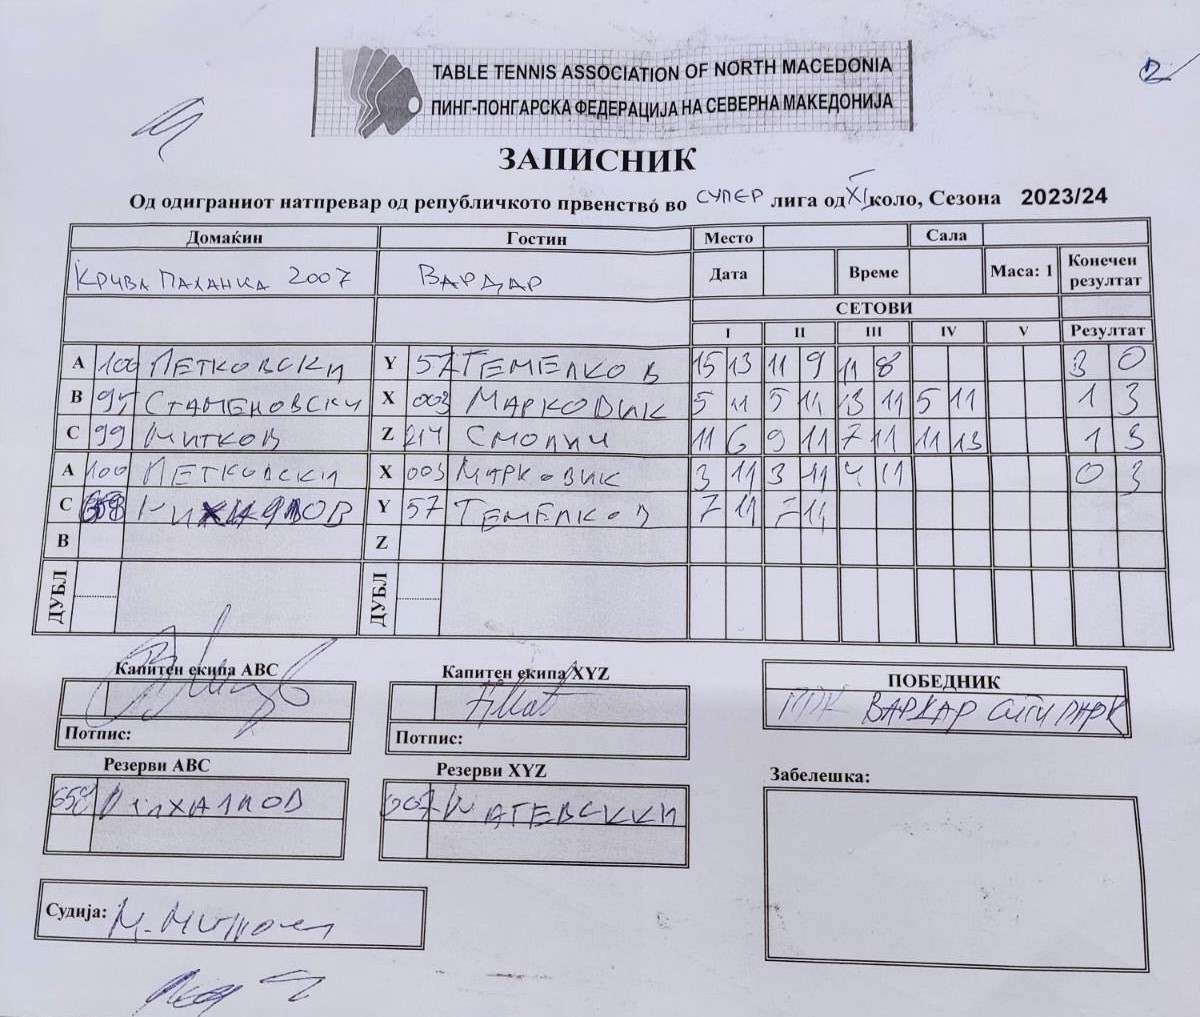 TABLE TENNIS ASSOCIATION OF NORTH MACEDONIA
ПИНГ-ПОНГАРСКА ФЕДЕРАЦИЈА НА СЕВЕРНА МАКЕДОНИЈА
ЗАПИСНИК
Од одиграниот натпревар од републичкото првенство во СУПЕР лига од XI коло, Сезона 2023/24
Домаќин Гостин Место Сала
КРИВА ПАЛАНКА 2007 ВАРДАР Дата Време Маса: 1 Конечен резултат
СЕТОВИ
I II III IV V Резултат
A 100 ПЕТКОВСКИ Y 57 ТЕМЕЛКОВ 15 13 11 9 11 8 3 0
B 95 СТАМЕНОВСКИ X 003 МАРКОВИК 5 11 5 11 13 11 5 11 1 3
C 99 МИТКОВ Z 214 СМОЛИЧ 11 6 9 11 7 11 11 13 1 3
A 100 ПЕТКОВСКИ X 003 МАРКОВИК 3 11 3 11 4 11 0 3
C 658 Y 57 ТЕМЕЛКОВ 7 11 7 11
B Z
ДУБЛ ДУБЛ
Капитен екипа ABC Капитен екипа XYZ
ПОБЕДНИК
ППК ВАРДАР СИТИ ПАРК
Потпис: Потпис:
Резерви ABC Резерви XYZ
Забелешка:
658 МИХАЛКОВ 007
Судија: М.